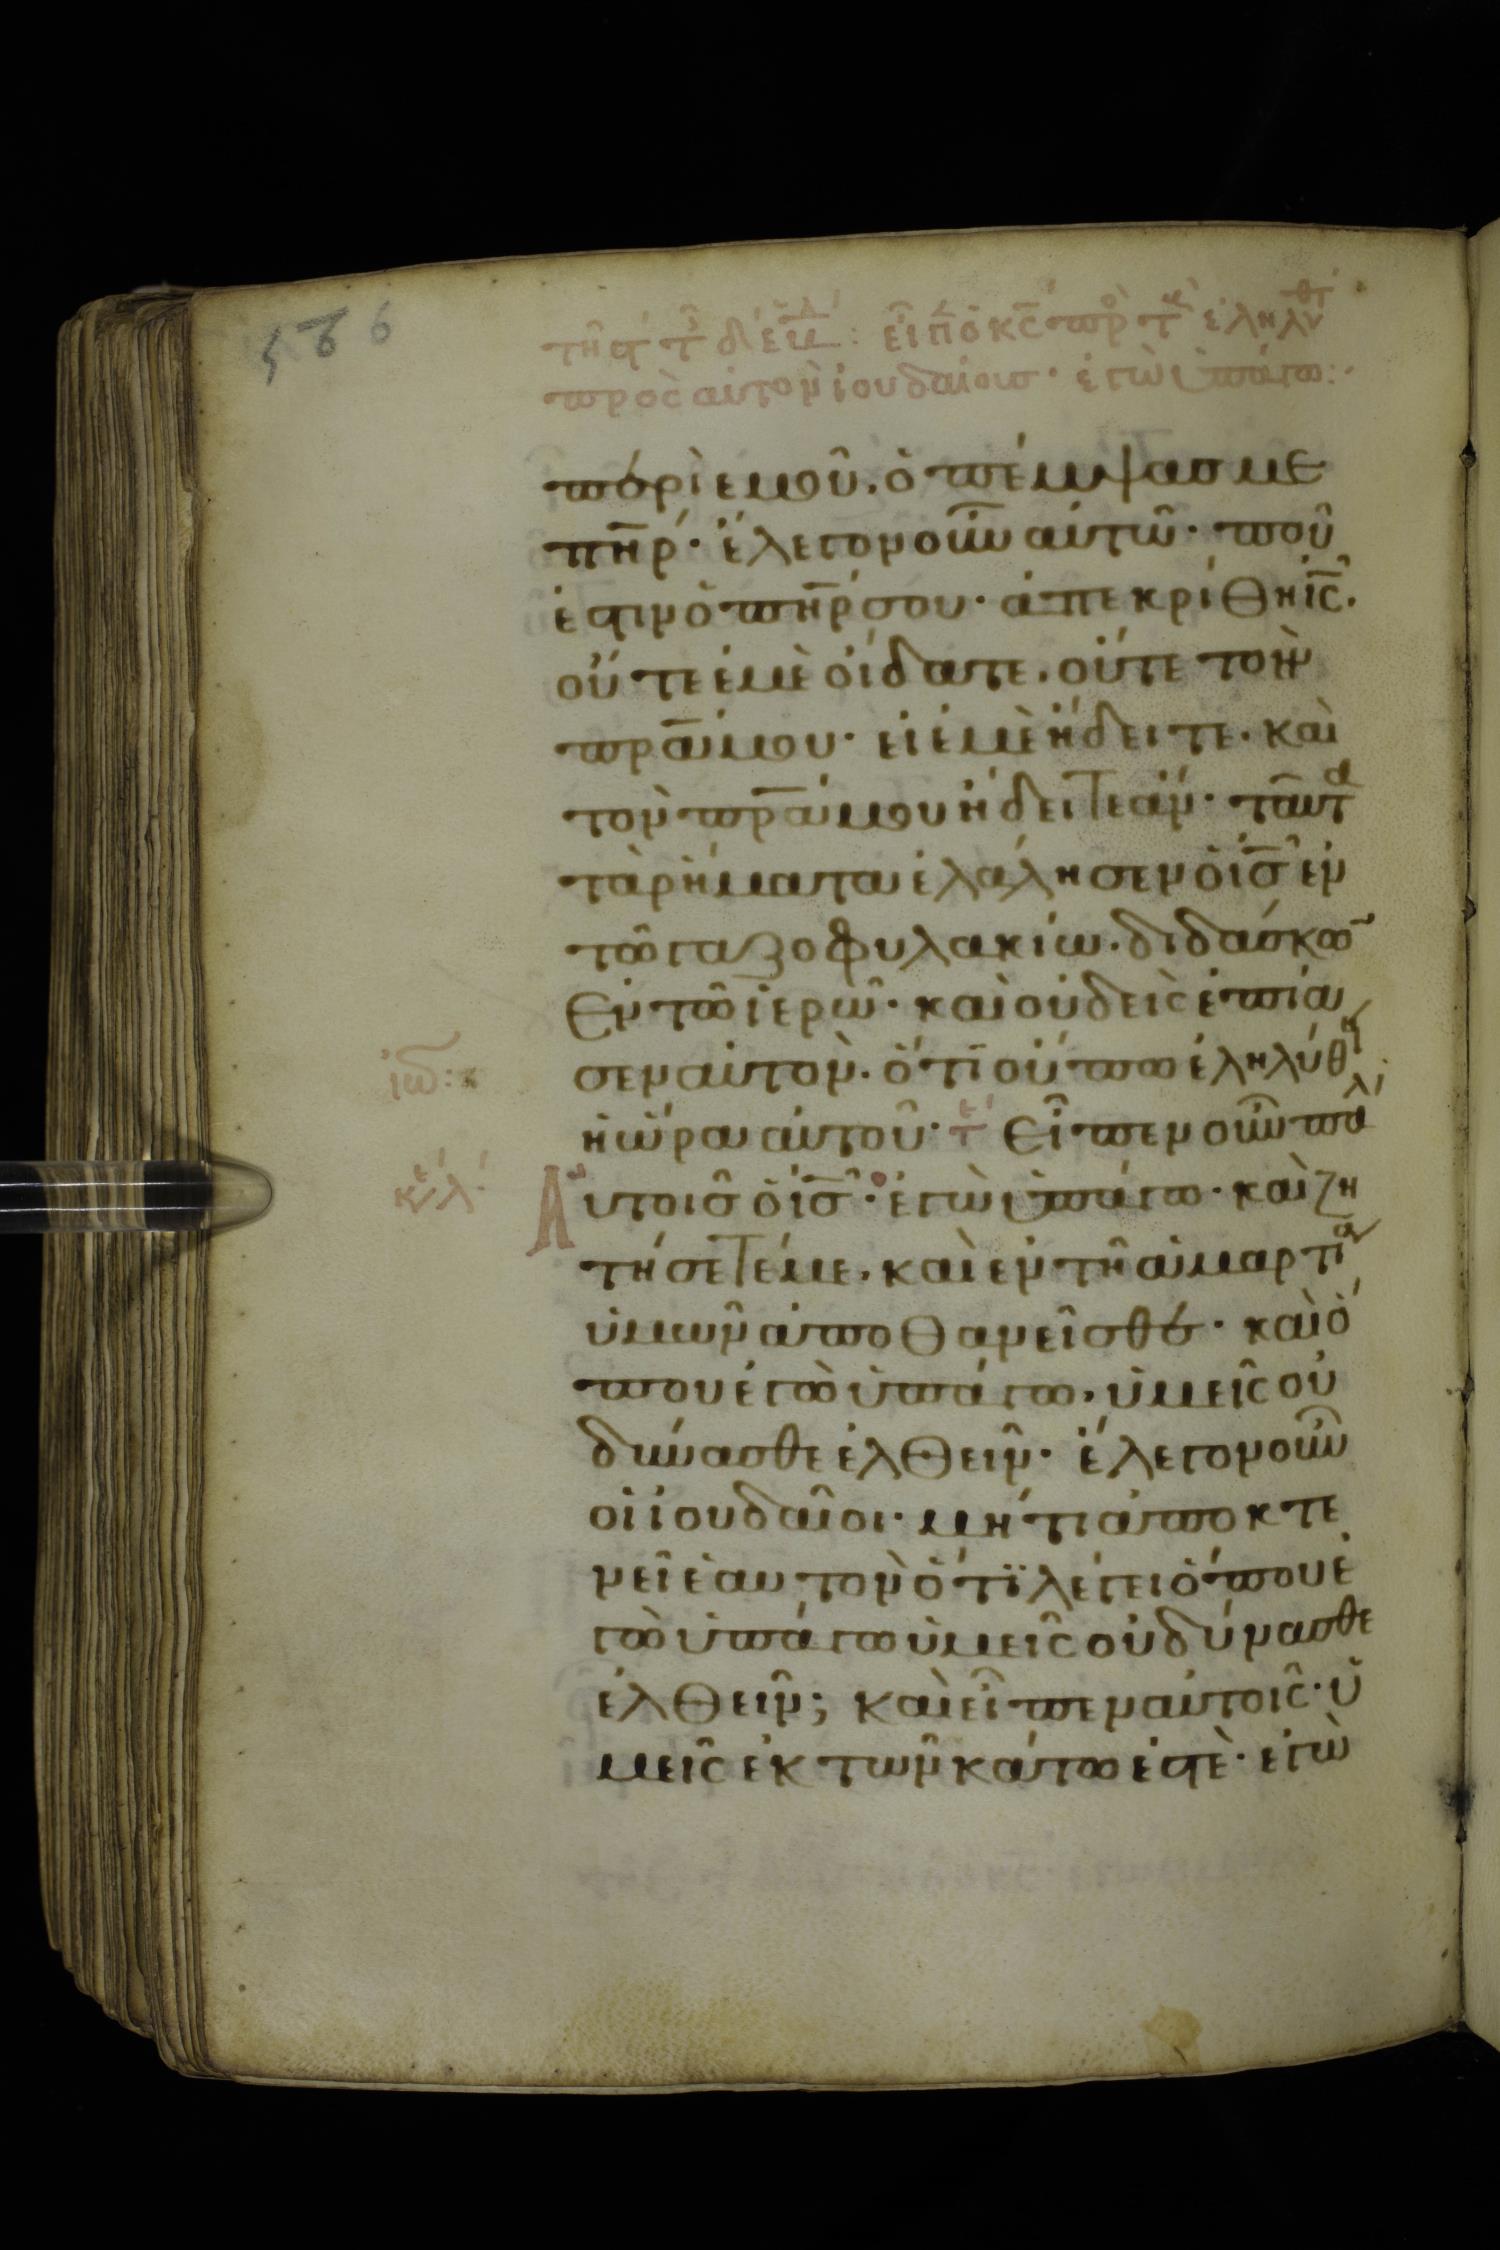 πρὸς αὐτὸν ἰουδαίους· ἐγὼ ὑπάγω:
περὶ ἐμοῦ, ὁ πέμψας με
πη̅ρ· ἔλεγον οὖν αὐτῶ· ποῦ
ἐστιν ὁ πη̅ρ σου· ἀπεκρίθη ἰ̅ς̅.
οὔτε ἐμὲ οἴδατε, οὔτε τὸν
πρ̅α μου· εἰ ἐμὲ ἤδειτε, καὶ
τὸν πρ̅α μου ἤδειτε ἄν· ταῦτα
τὰ ῥήματα ἐλάλησεν ὁ ἰ̅ς̅ ἐν
τῶ γαζοφυλακίω, διδάσκων
ἐν τῶ ἱερῶ· καὶ οὐδεὶς ἐπία
σεν αὐτὸν, ὅτι οὔπω ἐληλύθει
ἰω:
ἡ ὥρα αὐτοῦ· τε Εἶπεν οὖν πάλι
Αὐτοις ὁ ἰ̅ς̅· ἐγὼ ὑπάγω· καὶ ζη
τήσετέ με, καὶ ἐν τῆ ἁμαρτία
ὑμῶν ἀποθανεῖσθε· καὶ ὅ
που ἐγὼ ὑπάγω, ὑμεῖς οὐ
δύνασθε ἐλθεῖν· ἔλεγον οὖν
οἱ ἰουδαῖοι· μήτι ἀποκτε
νεῖ ἑαυτὸν ὅτϊ λέγει ὅπου ἐ
γὼ ὑπάγω ὑμεῖς οὐ δύνασθε
ἐλθεῖν; καὶ εἶπεν αὐτοῖς· ὑ
μεῖς ἐκ τῶν κάτω ἐστὲ· ἐγὼ